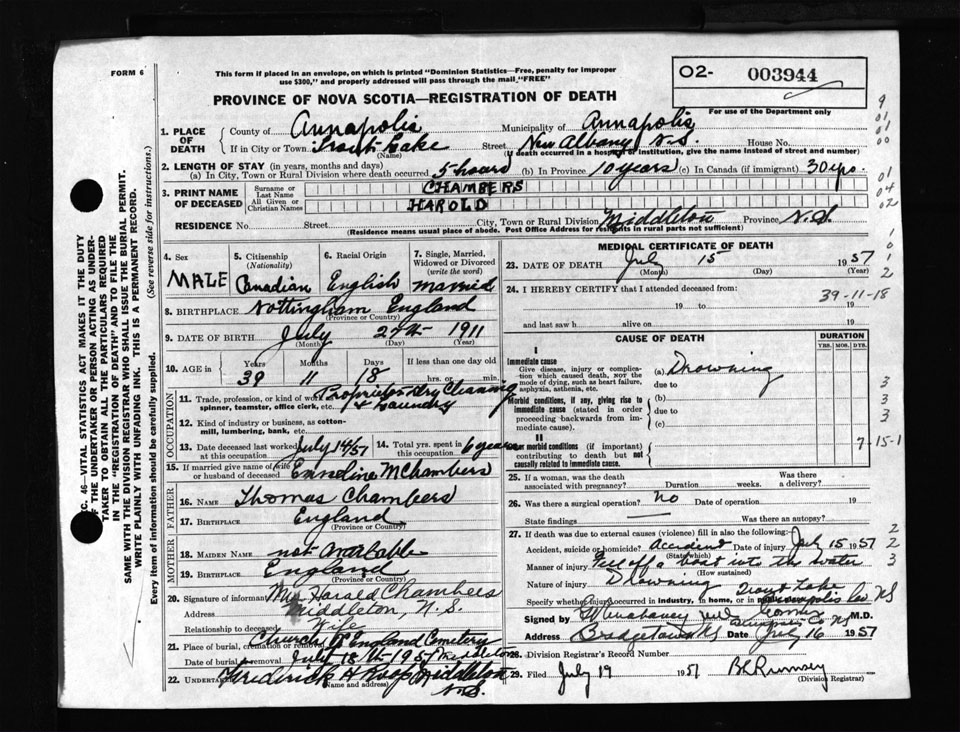 FORM 6
This form if placed in an envelope, on which is printed "Dominion Statistics—Free, penalty for improper
use $300," and properly addressed will pass through the mail "FREE"
PROVINCE OF NOVA SCOTIA—REGISTRATION OF DEATH
O2- 003944
For use of the Department only
1. PLACE OF DEATH
County of Annapolis Municipality of Annapolis
If in City or Town Trout Lake Street New Albany N.S. House No.
(Name) (If death occurred in a hospital or institution, give the name instead of street and number)
2. LENGTH OF STAY (in years, months and days)
(a) In City, Town or Rural Division where death occurred 5 hours (b) In Province 10 years (c) In Canada (if immigrant) 30 yrs.
3. PRINT NAME OF DECEASED
Surname or Last Name CHAMBERS
All Given or Christian Names HAROLD
RESIDENCE No. Street City, Town or Rural Division Middleton Province N.S.
(Residence means usual place of abode. Post Office Address for residents in rural parts not sufficient)
4. Sex MALE
5. Citizenship (Nationality) Canadian
6. Racial Origin English
7. Single, Married, Widowed or Divorced (write the word) Married
8. BIRTHPLACE Nottingham England
(Province or Country)
9. DATE OF BIRTH July 27th 1911
(Month) (Day) (Year)
10. AGE in Years Months Days If less than one day old
39 11 18 hrs. or min.
OCCUPATION
11. Trade, profession, or kind of work as spinner, teamster, office clerk, etc. Proprietor Dry Cleaning
& Laundry
12. Kind of industry or business, as cotton-mill, lumbering, bank, etc.
13. Date deceased last worked at this occupation July 14/57
14. Total yrs. spent in this occupation 6 years
15. If married give name of wife or husband of deceased M Chambers
FATHER
16. NAME Thomas Chambers
17. BIRTHPLACE England
(Province or Country)
MOTHER
18. MAIDEN NAME not available
19. BIRTHPLACE England
(Province or Country)
20. Signature of informant Mrs Harold Chambers
Address Middleton, N.S.
Relationship to deceased Wife
21. Place of burial, cremation or removal Church of England Cemetery
Date of burial or removal July 18th 1957 Middleton
22. UNDERTAKER Frederick H Roop Middleton
N.S.
(Name and address)
MEDICAL CERTIFICATE OF DEATH
23. DATE OF DEATH July 15 1957
(Month) (Day) (Year)
24. I HEREBY CERTIFY that I attended deceased from:
39-11-18
19 to 19
and last saw h alive on 19
CAUSE OF DEATH
DURATION
YRS. MOS. DYS.
I
Immediate cause
Give disease, injury or complication which caused death, not the mode of dying, such as heart failure, asphyxia, asthenia, etc.
(a) Drowning
due to
Morbid conditions, if any, giving rise to immediate cause (stated in order proceeding backwards from immediate cause).
(b)
due to
(c)
II
Other morbid conditions (if important) contributing to death but not causally related to immediate cause.
7-15-1
25. If a woman, was the death associated with pregnancy? Duration weeks. Was there a delivery?
26. Was there a surgical operation? No Date of operation 19
State findings Was there an autopsy?
27. If death was due to external causes (violence) fill in also the following:
Accident, suicide or homicide? Accident Date of injury July 15 1957
(State which)
Manner of injury Fell off a boat into the water
(How sustained)
Nature of injury Drowning
Trout Lake
Specify whether injury occurred in industry, in home, or in public place Annapolis Co NS
Signed by M.D.
Address Bridgetown NS Date July 16 1957
28. Division Registrar's Record Number
29. Filed July 19 1957 B L Rumsey
(Division Registrar)
SEC. 46—VITAL STATISTICS ACT MAKES IT THE DUTY
OF THE UNDERTAKER OR PERSON ACTING AS UNDER-
TAKER TO OBTAIN ALL THE PARTICULARS REQUIRED
IN THE "REGISTRATION OF DEATH" AND TO FILE THE
SAME WITH THE DIVISION REGISTRAR WHO SHALL ISSUE THE BURIAL PERMIT.
WRITE PLAINLY WITH UNFADING INK. THIS IS A PERMANENT RECORD.
Every item of information should be carefully supplied. (See reverse side for instructions.)
9
01
01
00
01
04
02
1
0
1
2
3
3
3
3
2
2
3